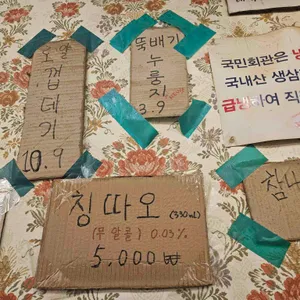 오알
껍데기
10.9
뚝배기
누룽지
3.9
국민회관은
국내산 생삼
급냉하여 직
참
칭따오 (330ml)
(무알콜) 0.05%
5,000₩